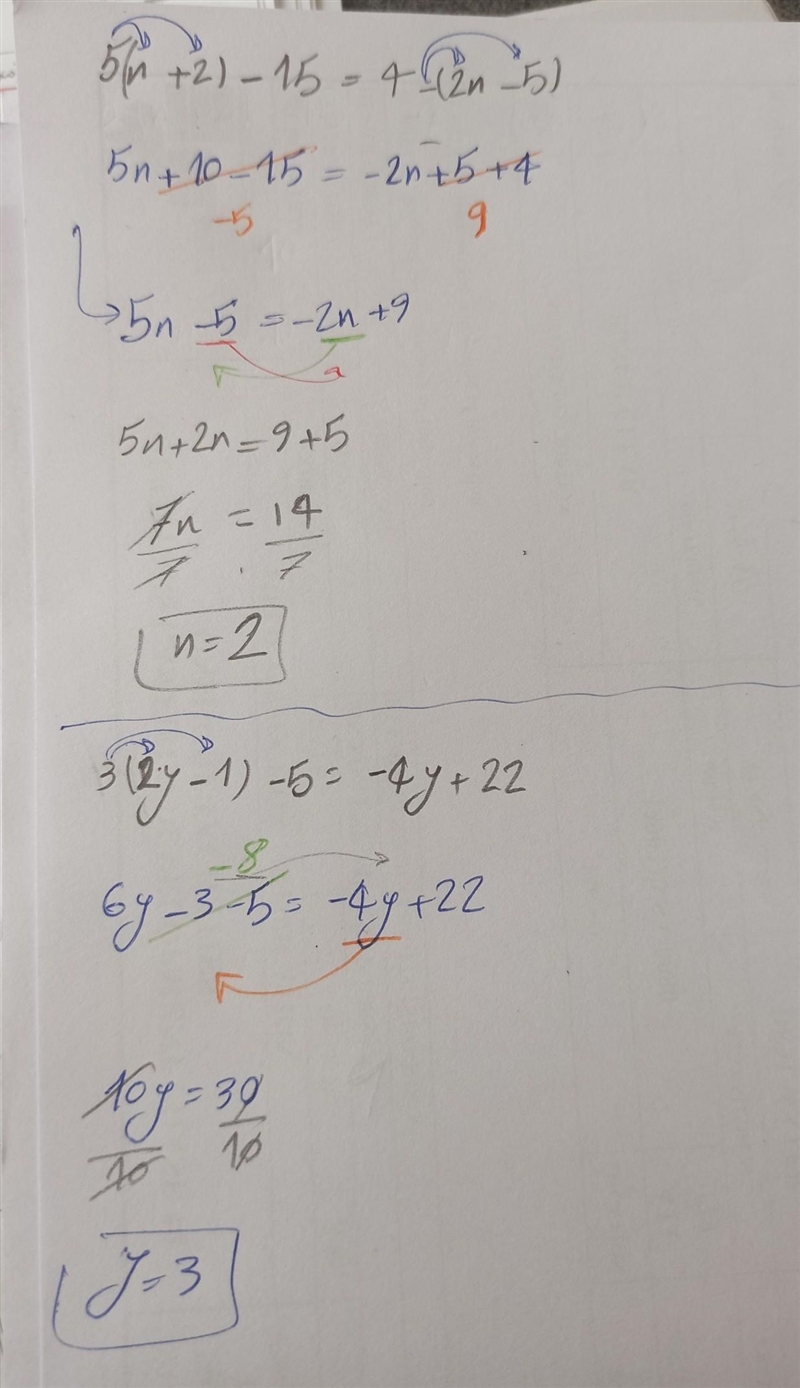 5(n +2) - 15 = 4 -(2n -5)
5n +10 -15 = -2n +5 +4
-5 9
5n -5 = -2n +9
5n+2n = 9+5
7n/7 = 14/7
n=2
3(2y - 1) -5 = -4y + 22
-8
6y -3 -5 = -4y +22
10y/10 = 30/10
y=3